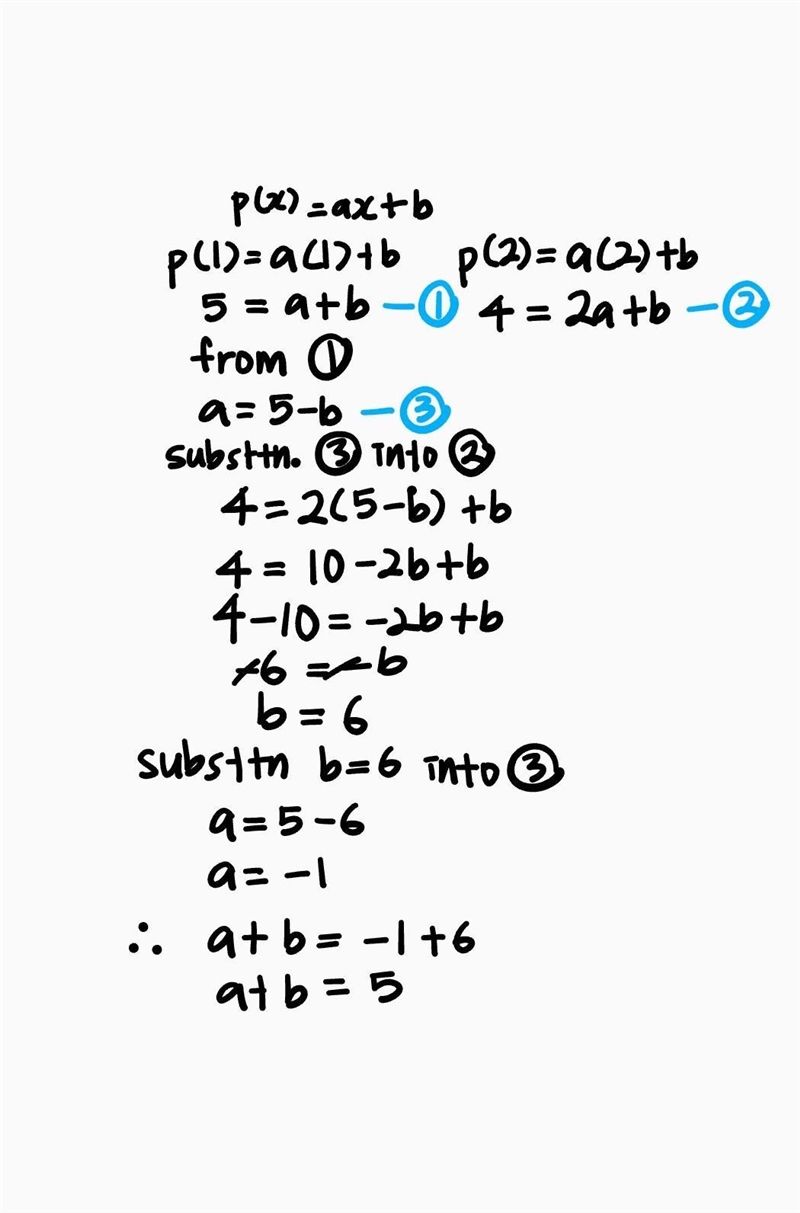 p(x)=ax+b
p(1)=a(1)+b p(2)=a(2)+b
5=a+b—① 4=2a+b—②
from ①
a=5-b—③
substtn. ③ into ②
4=2(5-b)+b
4=10-2b+b
4-10=-2b+b
-6=-b
b=6
substtn b=6 into ③
a=5-6
a=-1
∴ a+b=-1+6
a+b=5